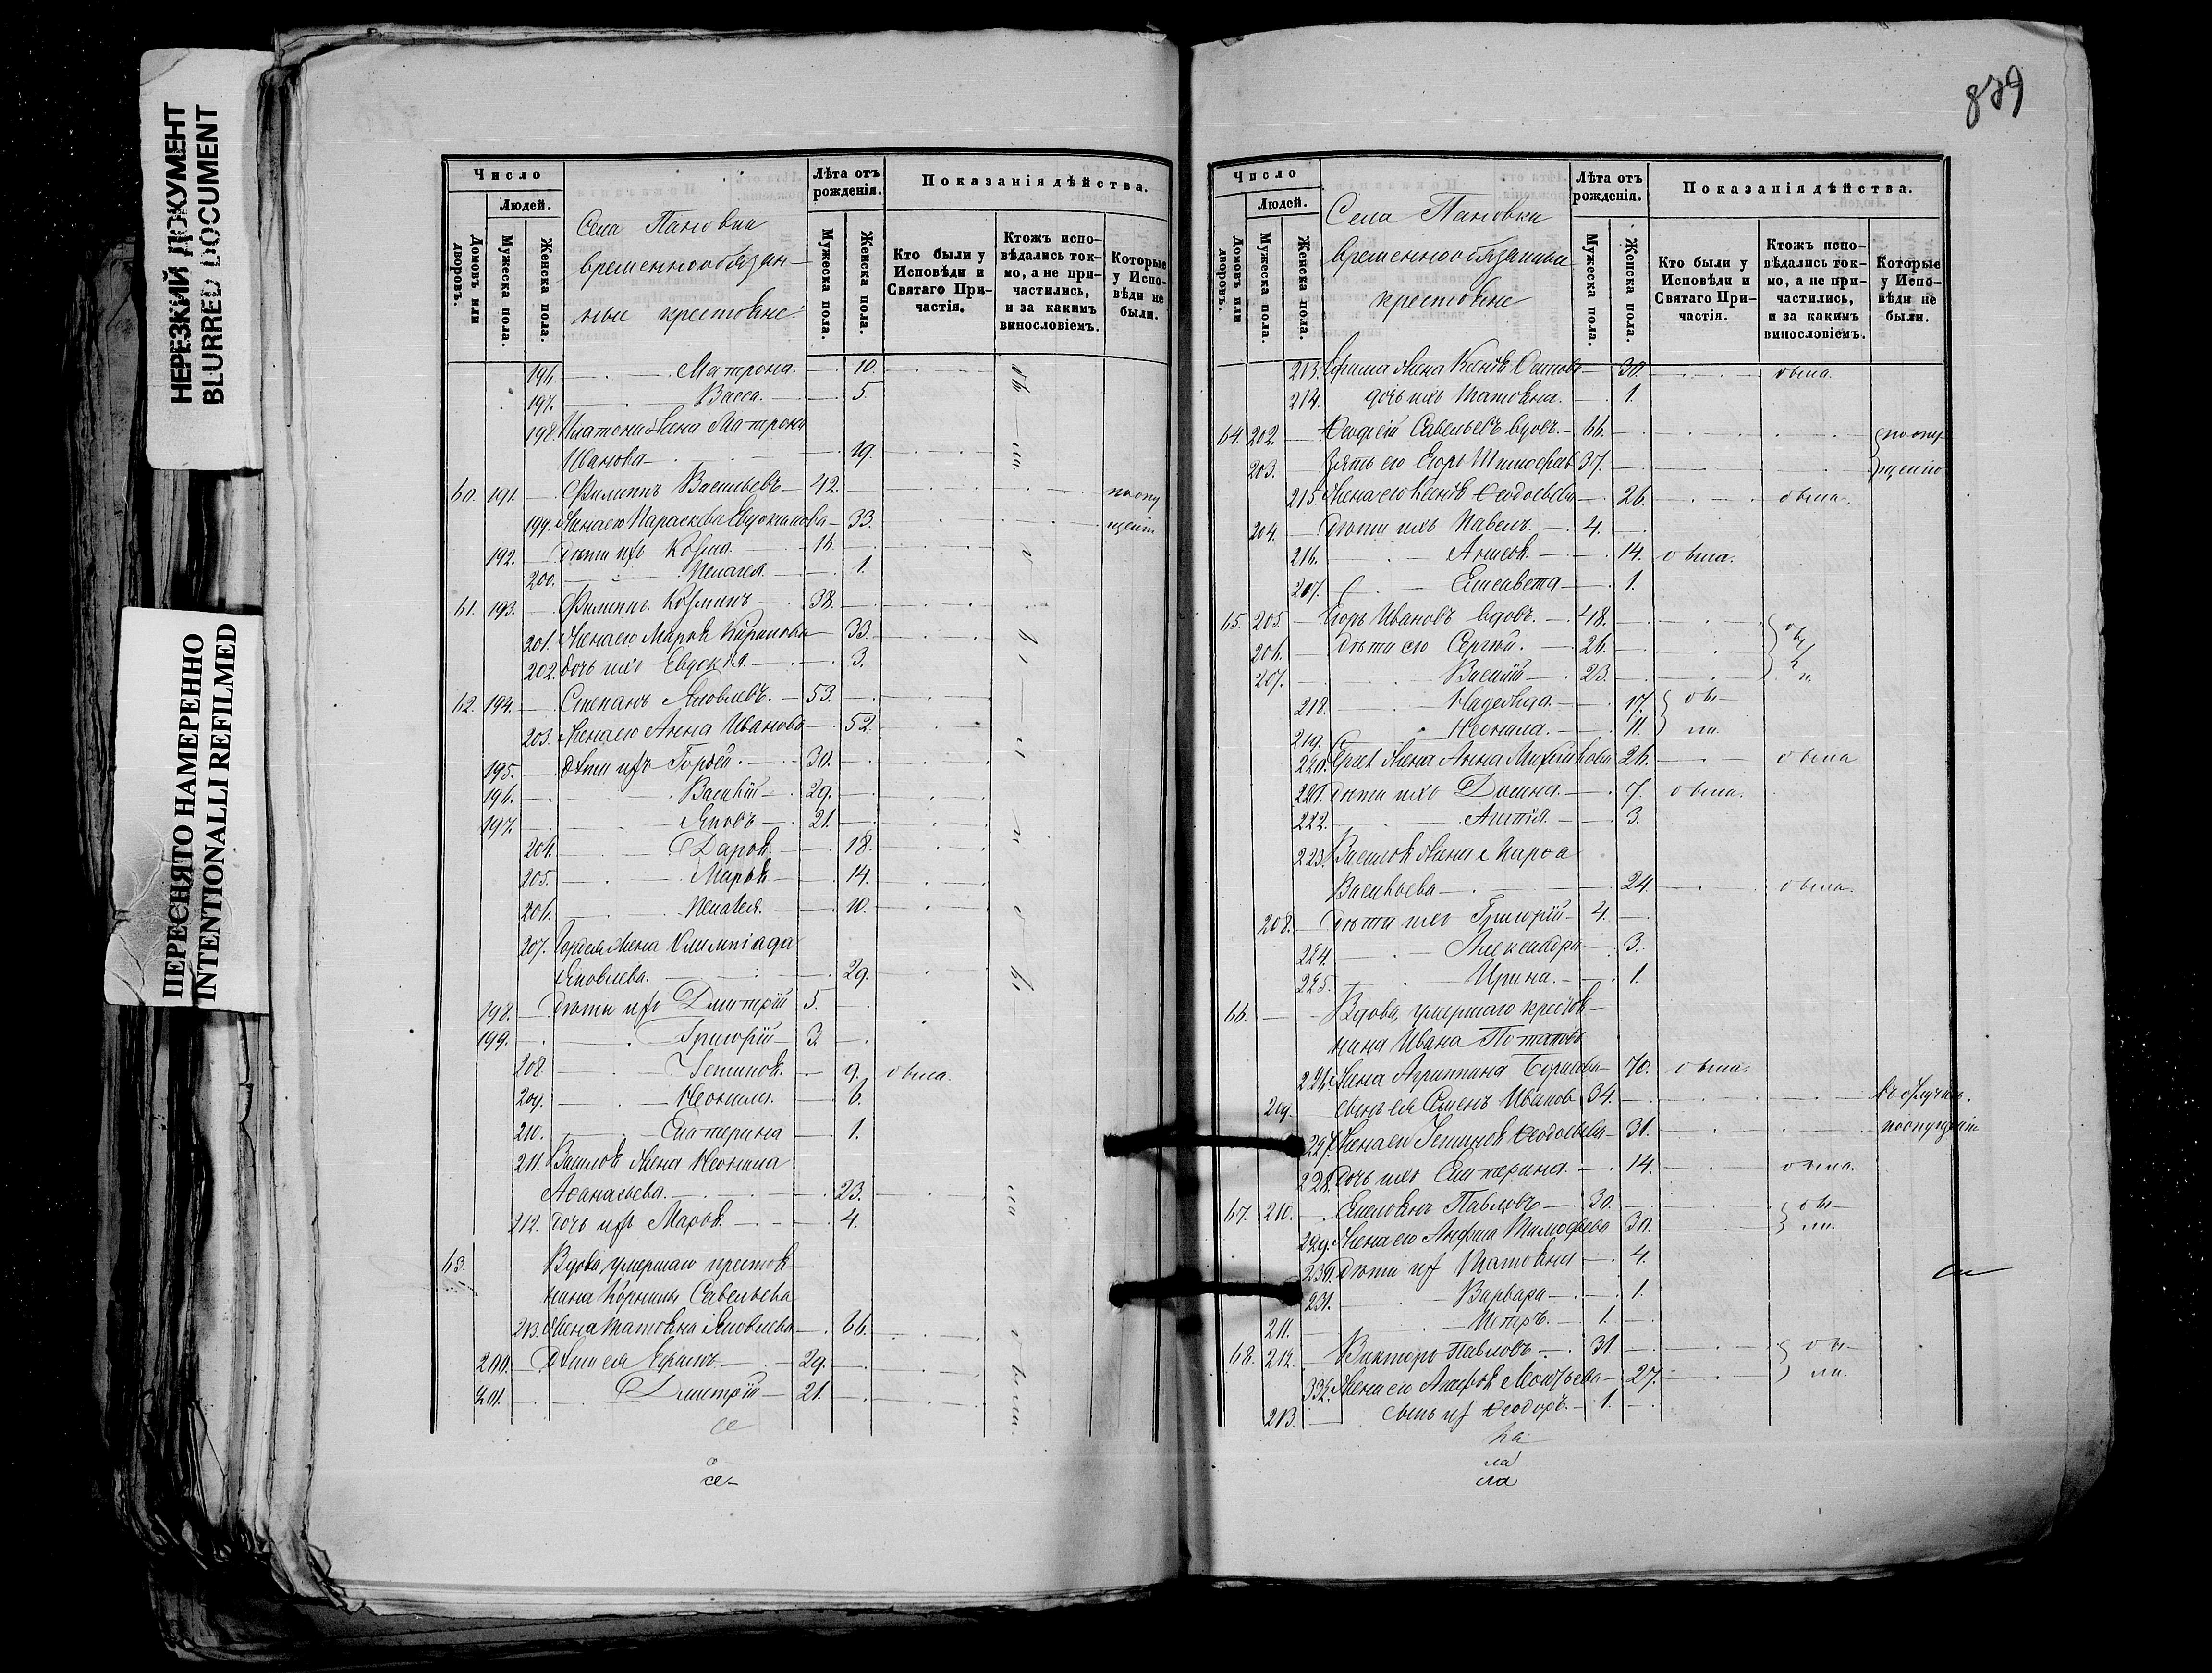 НЕРЕЗКИЙ ДОКУМЕНТ
BLURRED DOCUMENT
ПЕРЕСНЯТО НАМЕРЕННО
INTENTIONALLI REFILMED
Число
Людей.
Домовъ или дворовъ.
Мужеска пола.
Женска пола.
Села Пановки
временнообязан-
ные крестьяне:
Лѣта отъ рожденія.
Мужеска пола.
Женска пола.
Показанія дѣйства.
Кто были у Исповѣди и Святаго Причастія.
Ктожъ испо-
вѣдались ток-
мо, а не при-
частились,
и за какимъ
винословіемъ.
Которые
у Испо-
вѣди не
были.
196. Матрона. 10.
197. Васса. 5.
198. Платона жена Матрона
Иванова 19.
60. 191. Филиппъ Васильевъ 42. по опу
199. Жена его Параскева Евдокимова 33. щенію
192. Дѣти ихъ Козма 16
200. Пелагея 1.
61. 193. Филиппъ Козминъ 38.
201. Жена его Марѳа 33.
202. дочь ихъ Евдокія 3.
62. 194. Степанъ Яковлевъ. 53.
203. Жена его Анна Иванова 52.
195. дѣти ихъ Гордѣй 30.
196. Василій 29.
197. Яковъ 21.
204. Дарья 18.
205. Марья 14.
206. Пелагея 10.
207. Гордѣя жена Олимпіада
Яковлева. 29.
198. Дѣти ихъ Дмитрій 5.
199. Григорій 3
208. Устинья. 9. была.
209. Неонила 6.
210. Екатерина 1.
211. Василья жена Неонила
Аѳанасьева. 23.
212. дочь ихъ Марья. 4.
63. Вдова, умершаго крестья-
нина Корнилы Савельева
213. жена Татьяна Яковлева 66.
200. Дѣти ея Ефимъ 29.
201. Дмитрій 21. были.
839
Число
Людей.
Домовъ или дворовъ.
Мужеска пола.
Женска пола.
Села Пановки
временнообязанные
крестьяне
Лѣта отъ рожденія.
Мужеска пола.
Женска пола.
Показанія дѣйства.
Кто были у Исповѣди и Святаго Причастія.
Ктожъ испо-
вѣдались ток-
мо, а не при-
частились,
и за какимъ
винословіемъ.
Которые
у Испо-
вѣди не
были.
213. Ефима жена Ксенія Осипова 30. была.
214. дочь ихъ Татьяна. 1.
64. 202. Савельевъ вдовъ. 66. по опу
203. Зять его Егоръ Тимофѣевъ 37. щенію
215. Жена его Ксенія Ѳедосѣева 26 была.
204. Дѣти ихъ Павелъ. 4.
216. Анисья. 14. была.
207. Елисавета 1.
65. 205. Егоръ Ивановъ вдовъ. 48.
206. Дѣти его Сергій. 26.
207. Василій 23.
218. Надежда. 17. бы-
219. Неонила. 11. ли.
220. Сергія жена Анна Михайлова 26. была
221. Дѣти ихъ Домна. 7. была.
222. Агапія. 3.
223. Василья жена Марѳа
Васильева 24 была.
208. Дѣти ихъ Григорій 4.
224. Александра 3.
225. Ирина. 1.
66. Вдова, умершаго крестья-
нина Ивана Потапова
226. жена Агриппина Борисова 70. была.
209. сынъ ея Семенъ Ивановъ 34. въ отлучкѣ.
227. Жена его Устинья Ѳедосѣева 31. по опущенію
228. дочь ихъ Екатерина. 14. была.
67. 210. Емельянъ Павловъ 30. бы-
229. Жена его Анфиса Тимофѣева 30. ли.
230. Дѣти ихъ Татьяна 4.
231. Варвара 1.
211. Петръ. 1.
68. 212. Викторъ Павловъ 31. бы-
332. Жена его Моисѣева 27. ли.
213. сынъ ихъ Ѳеодоръ. 1.